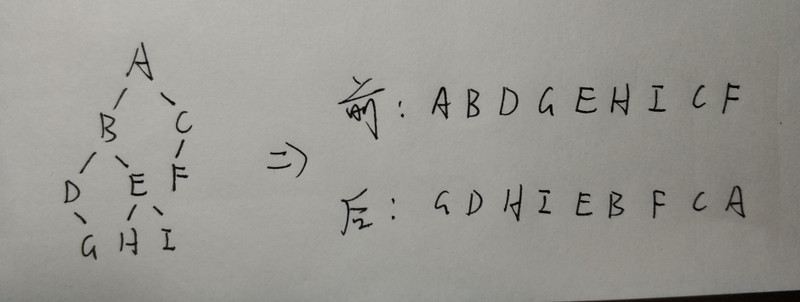 A
B C
D E F
G H I
⇒
前: A B D G E H I C F
后: G D H I E B F C A